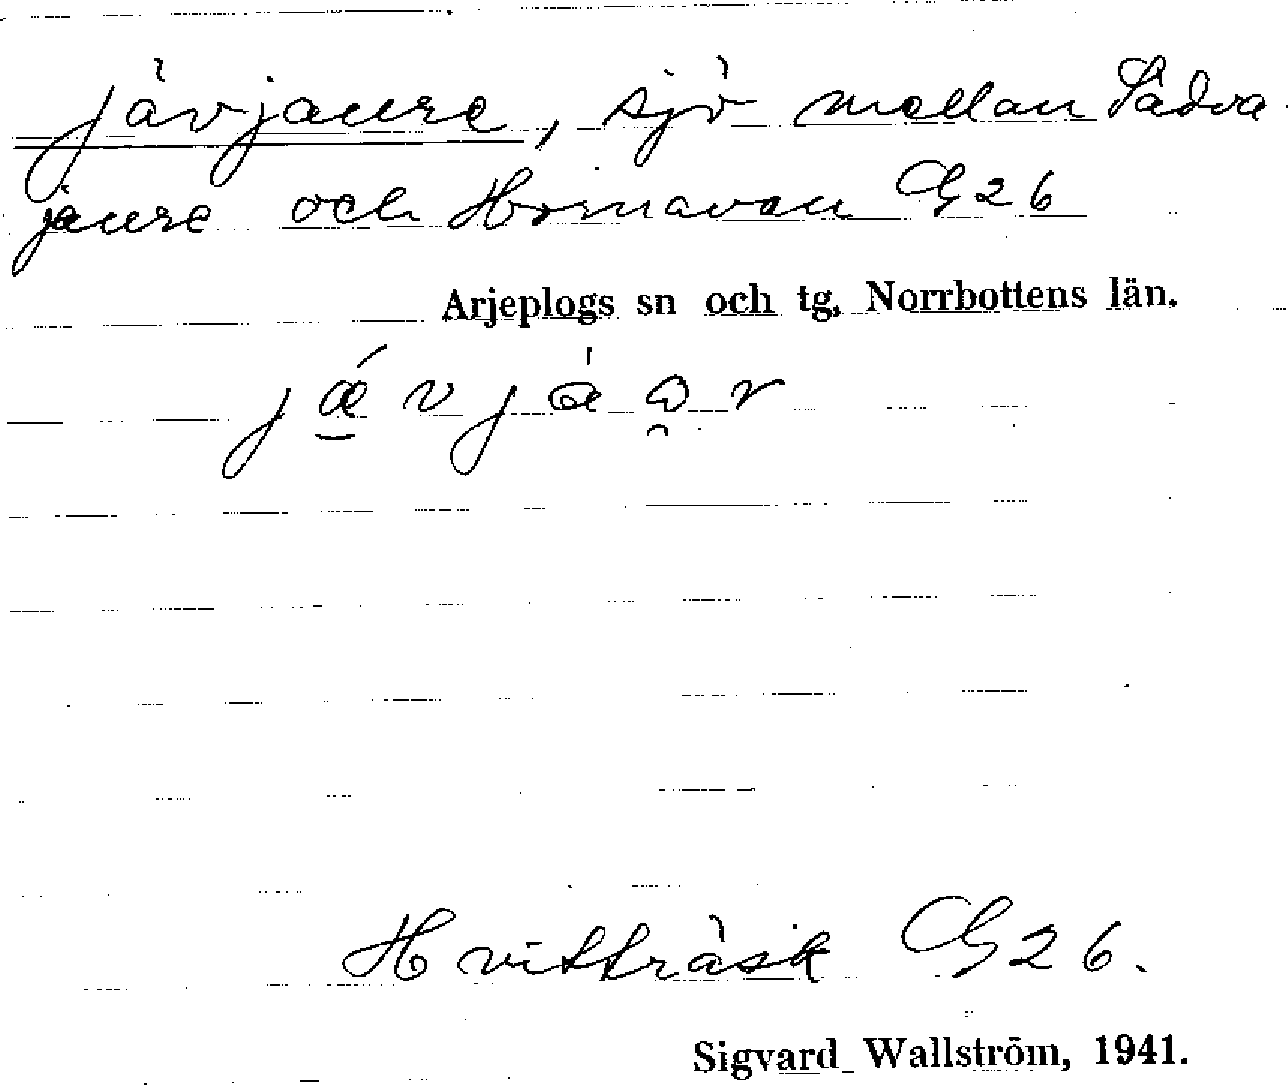 Jävjaure, sjö mellan Sädva-
jaure och Hornavan G26
Arjeplogs sn och tg, Norrbottens län.
Hvitträsk G26.
Sigvard Wallström, 1941.